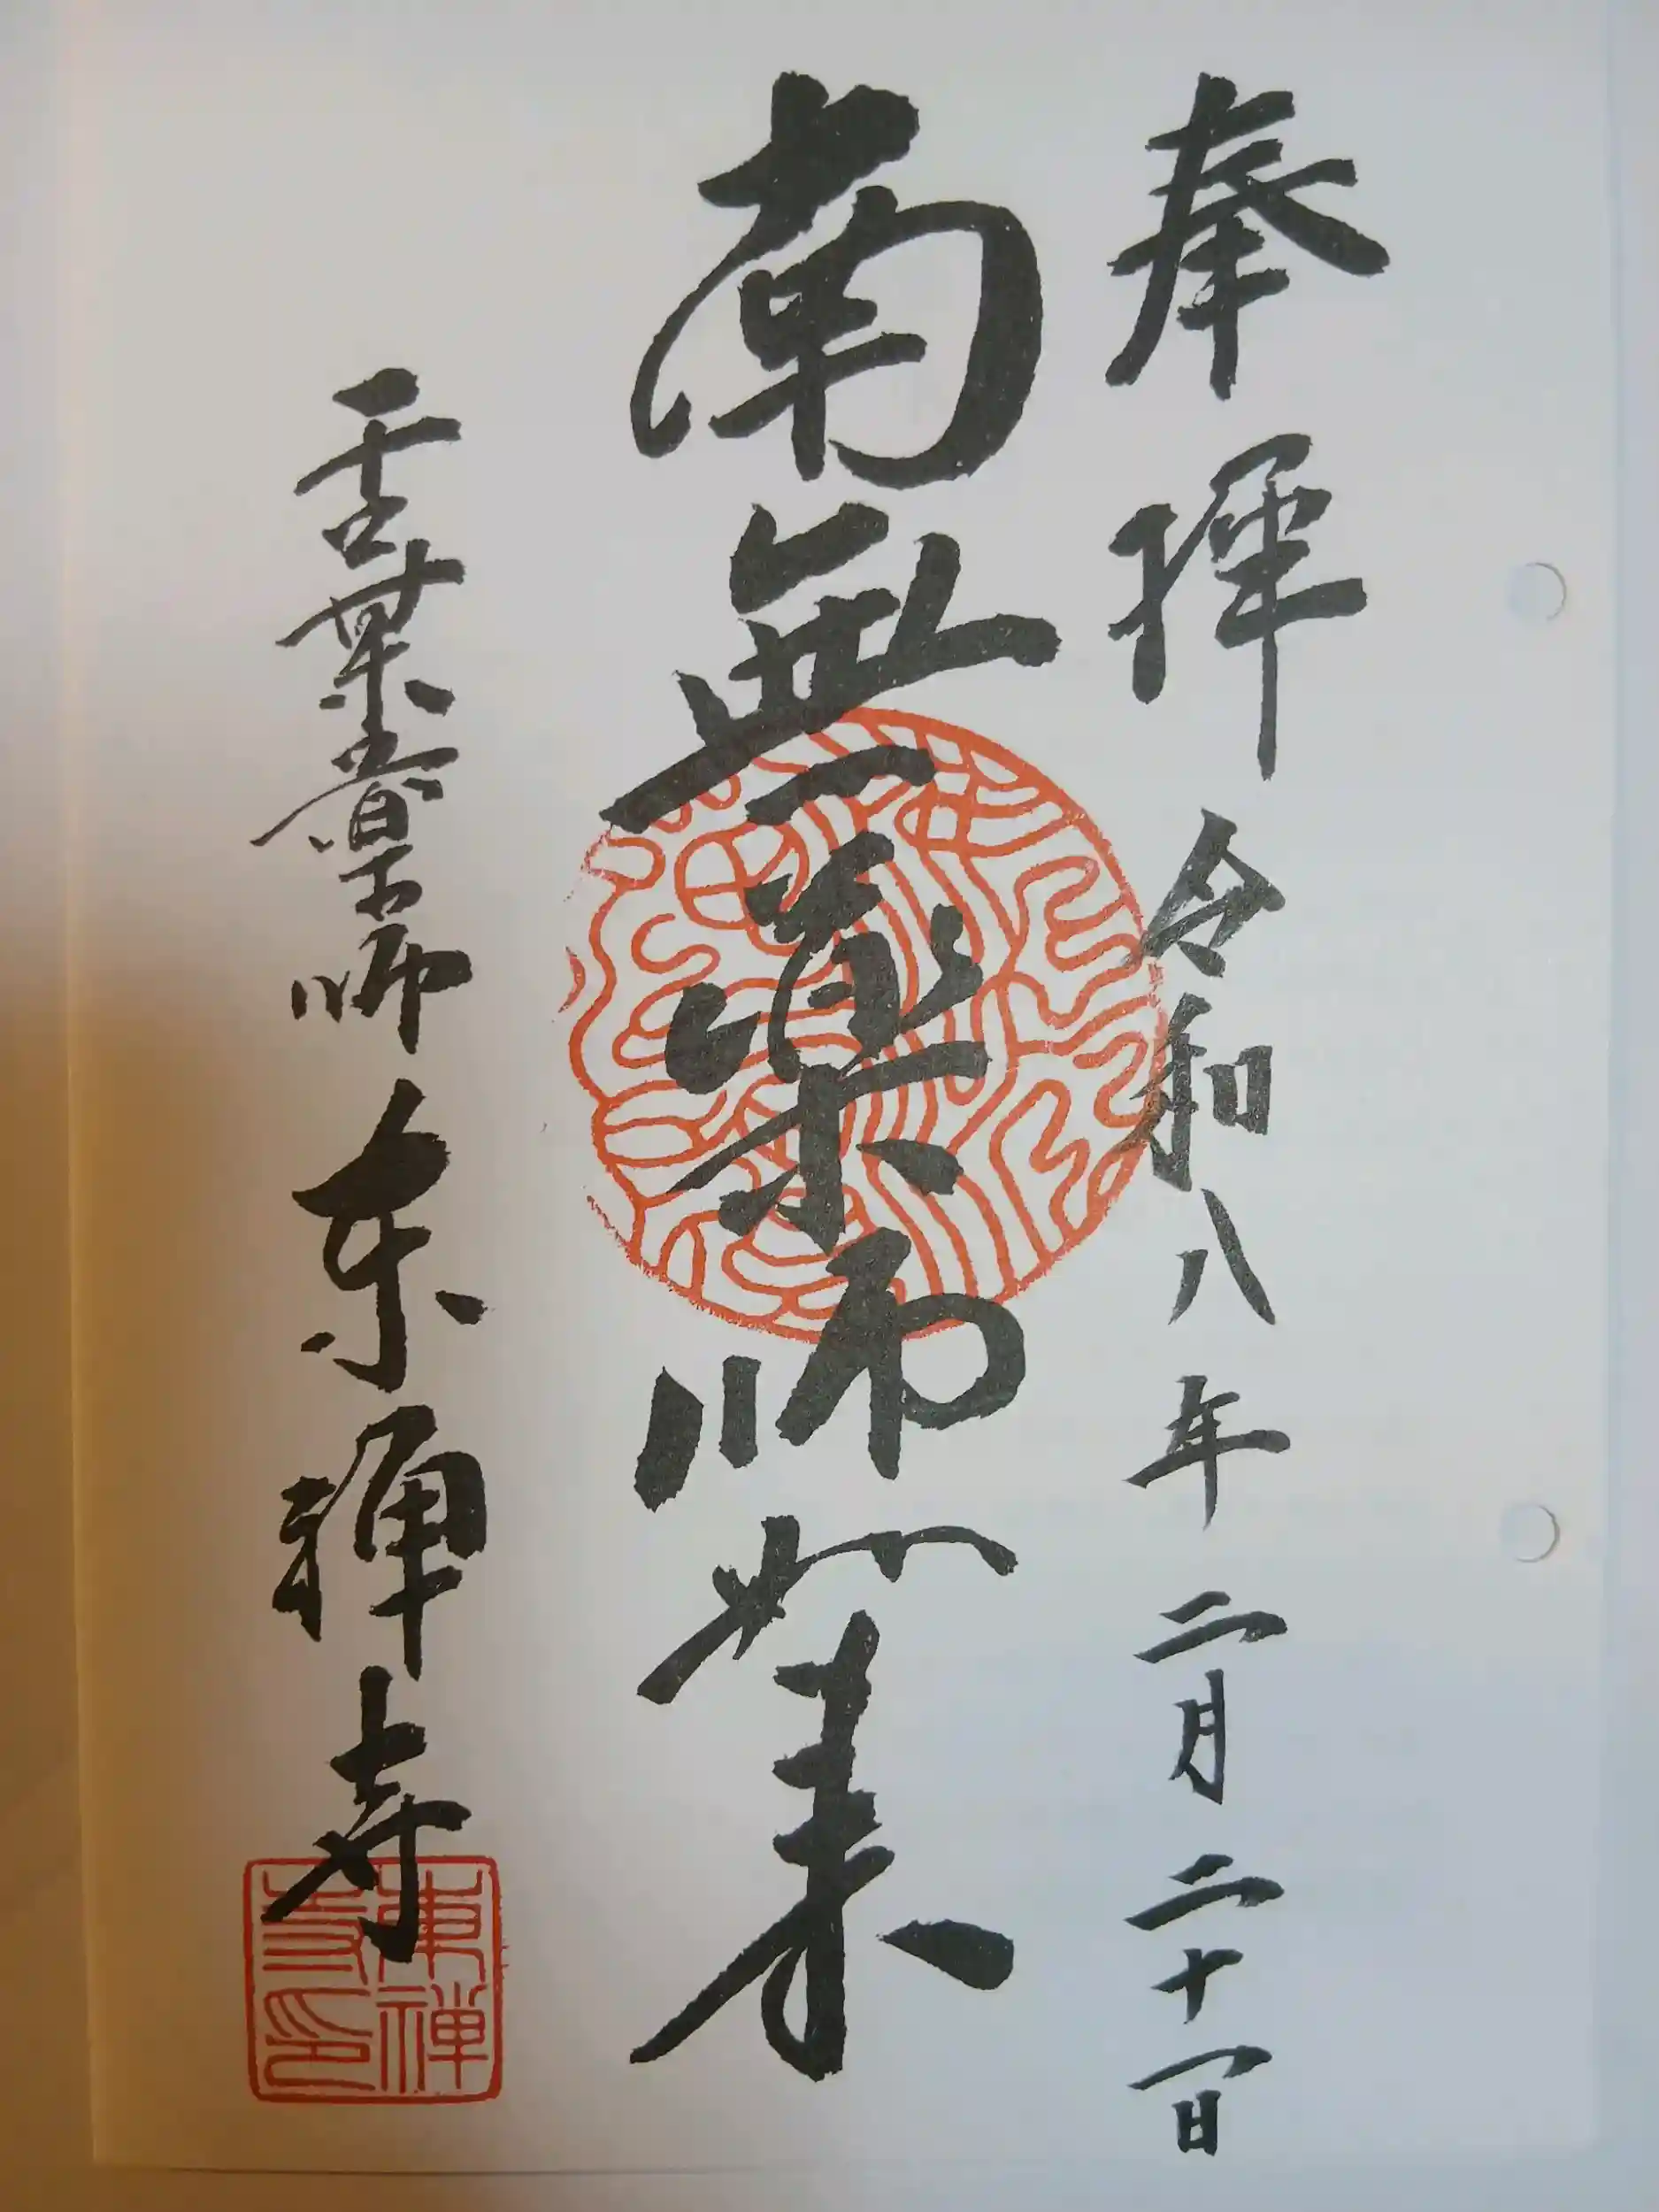 奉拝 令和八年二月二十一日
南無薬師如来
師 東禅寺
東禅
寺印